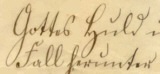 Gottes Huld u
Fall herunter